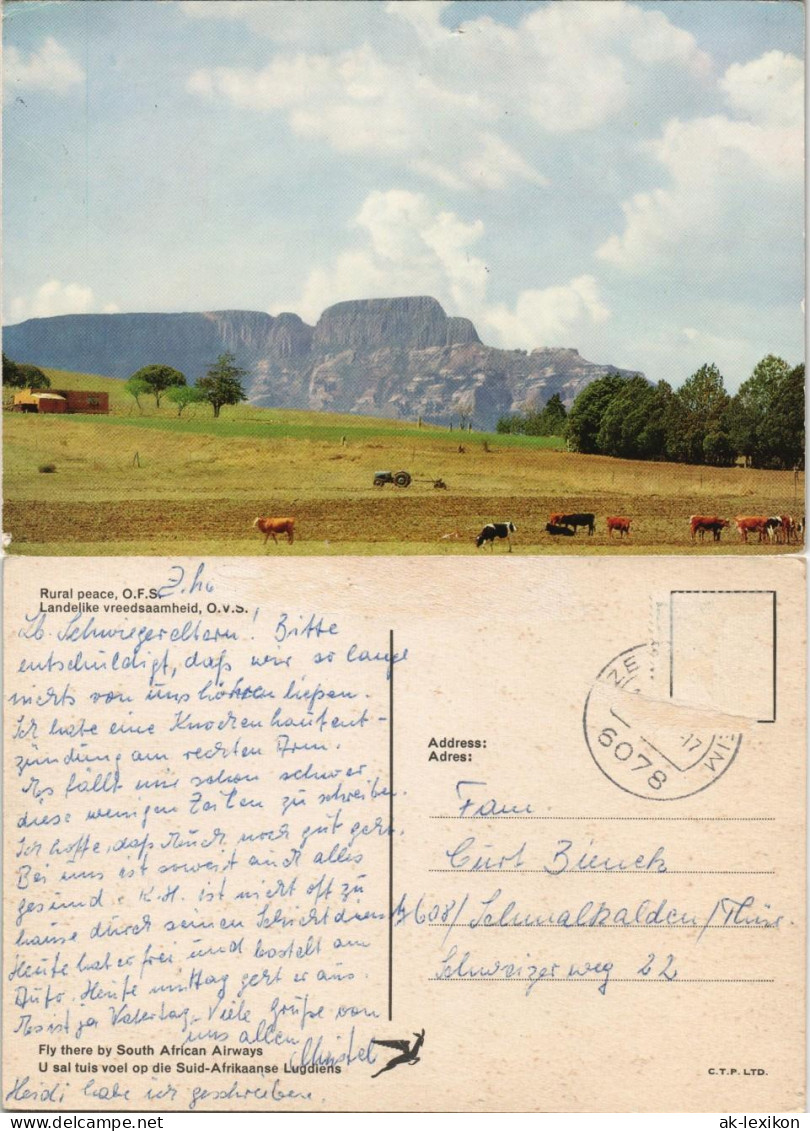 Rural peace, O.F.S.
Landelike vreedsaamheid, O.V.S.
Lb. Schwiegereltern! Bitte
entschuldigt, daß wir so lange
nichts von uns hören ließen.
Ich habe eine Knochenhautent-
zündung am rechten Arm.
Es fällt mir schon schwer
diese wenigen Zeilen zu schreiben.
Ich hoffe, daß Euch noch gut geht.
Bei uns ist soweit auch alles
gesund. K.H. ist nicht oft zu
hause durch seinen Schichtdienst.
Heute hat er frei und bastelt am
Auto. Heute mittag geht er aus.
Es ist ja Vatertag. Viele Grüße von
uns allen
Christel
Heidi habe ich geschrieben.
Fly there by South African Airways
U sal tuis voel op die Suid-Afrikaanse Lugdiens
6078
17
Address:
Adres:
Fam.
Curt Bienck
608/ Schmalkalden/Thür.
Schweizer weg 22
C.T.P. LTD.
ak-lexikon